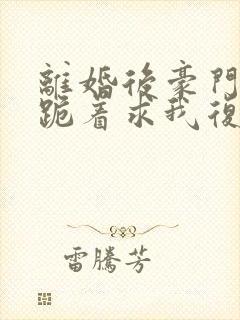 離婚後豪門
跪着求我復
雷騰芳